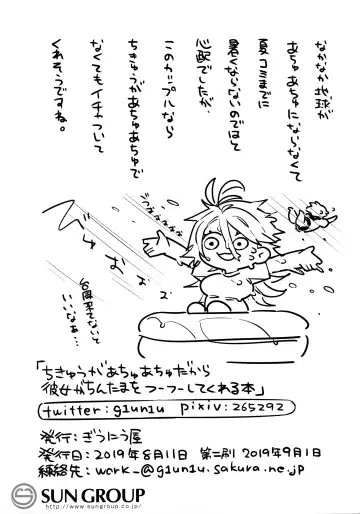 なかなか地球が
あちゅあちゅにならなくて
夏コミまでに
暑くならないのではと
心配でしたが、
このカップルなら
ちきゅうがあちゅあちゅで
なくてもイチャついて
くれそうですね。
台風来てないと
いいなぁ…
「ちきゅうがあちゅあちゅだから
彼女がちんたまをフーフーしてくれる本」
twitter:g1un1u pixiv:265292
発行:ぎうにう屋
発行日:2019年8月11日 第二刷 2019年9月1日
連絡先:work_@g1un1u.sakura.ne.jp
SUN GROUP
http://www.sungroup.co.jp/